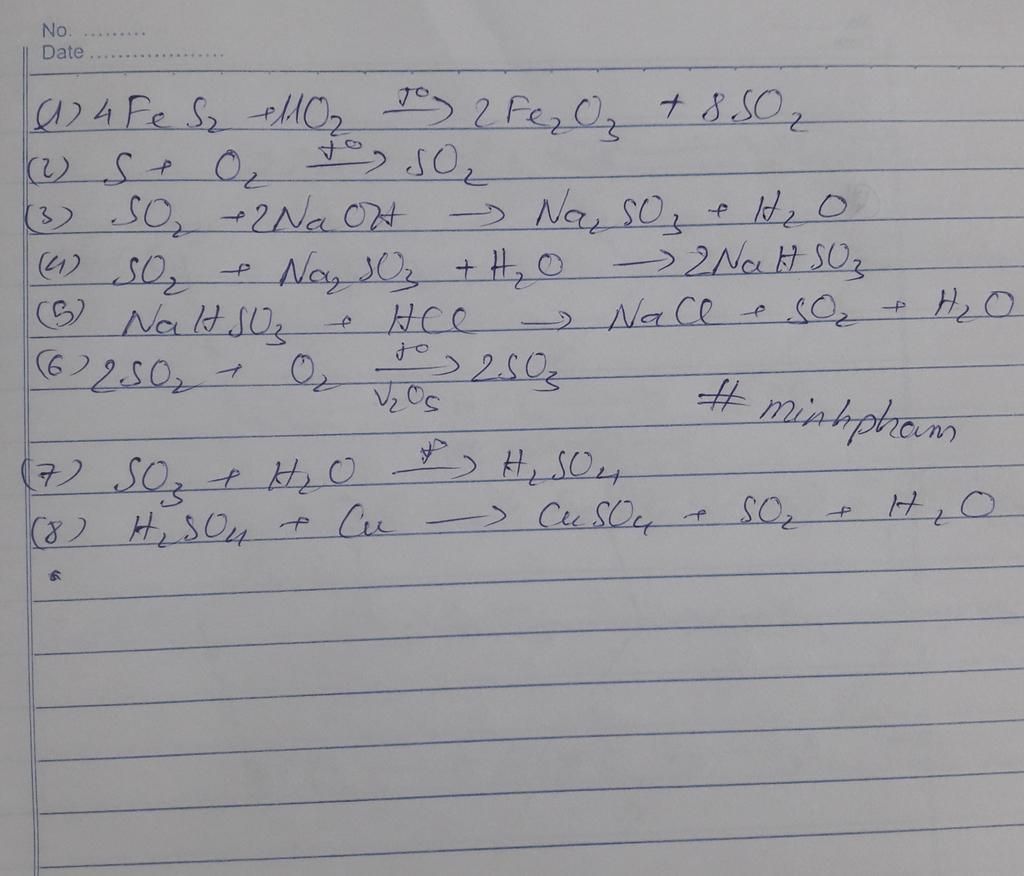 No. .........
Date ...................
(1) 4FeS₂ + 11O₂ t° → 2Fe₂O₃ + 8SO₂
(2) S + O₂ t° → SO₂
(3) SO₂ + 2NaOH → Na₂SO₃ + H₂O
(4) SO₂ + Na₂SO₃ + H₂O → 2NaHSO₃
(5) NaHSO₃ + HCl → NaCl + SO₂ + H₂O
(6) 2SO₂ + O₂ t° → V₂O₅ 2SO₃
# minhpham
(7) SO₃ + H₂O → H₂SO₄
(8) H₂SO₄ + Cu → CuSO₄ + SO₂ + H₂O